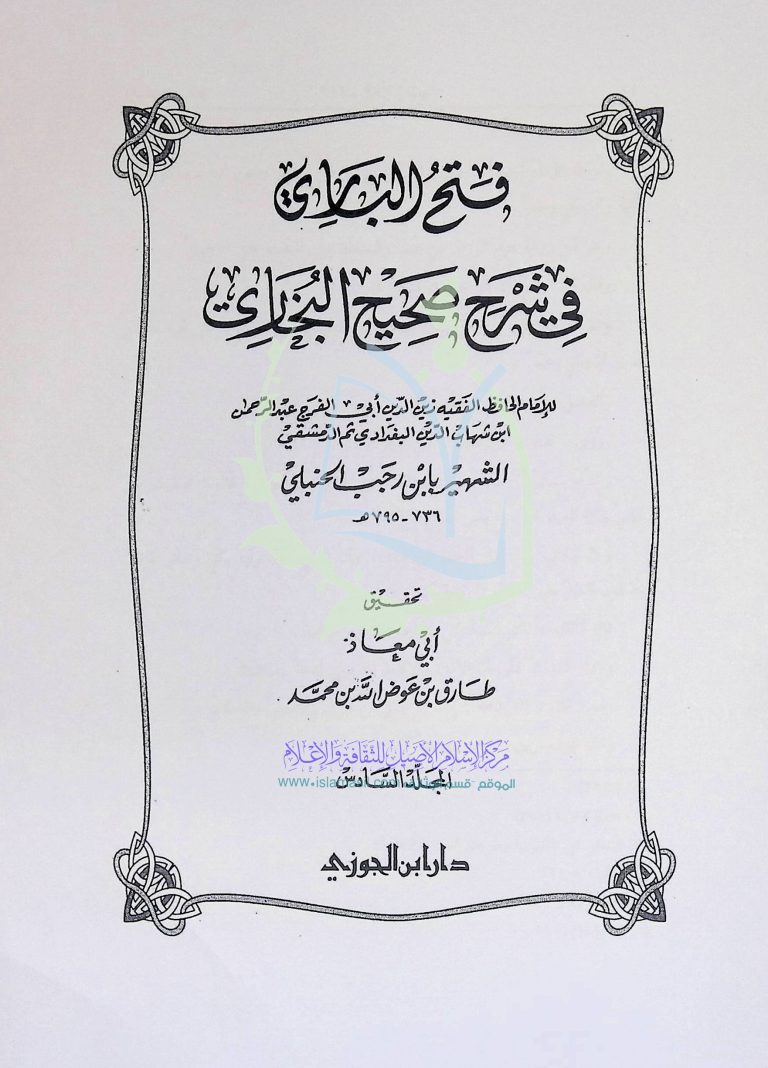 فَتْحُ البَارِي
فِي شَرْحِ صَحِيحِ البُخَارِي
للإمام الحافظ الفقيه زين الدين أبي الفرج عبد الرحمن
ابن شهاب الدين البغدادي ثم الدمشقي
الشهير بابن رجب الحنبلي
٧٣٦ - ٧٩٥ هـ
تحقيق
أبي معاذ
طارق بن عوض الله بن محمد
مركز الإسلام الأصيل للثقافة والإعلام
المجلد السادس
الموقع
دار ابن الجوزي